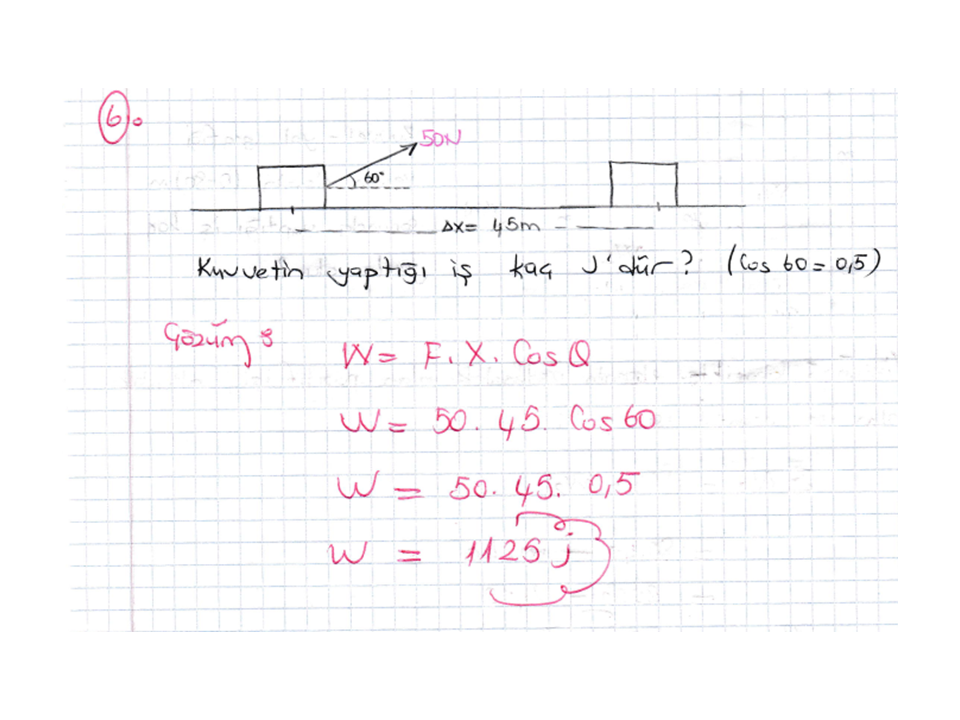 6.
50N
60°
Δx= 45m
Kuvvetin yaptığı iş kaç J'dür? (Cos 60 = 0,5)
Çözüm:
W= F. X. Cos Q
W= 50. 45. Cos 60
W = 50. 45. 0,5
W = 1125 j